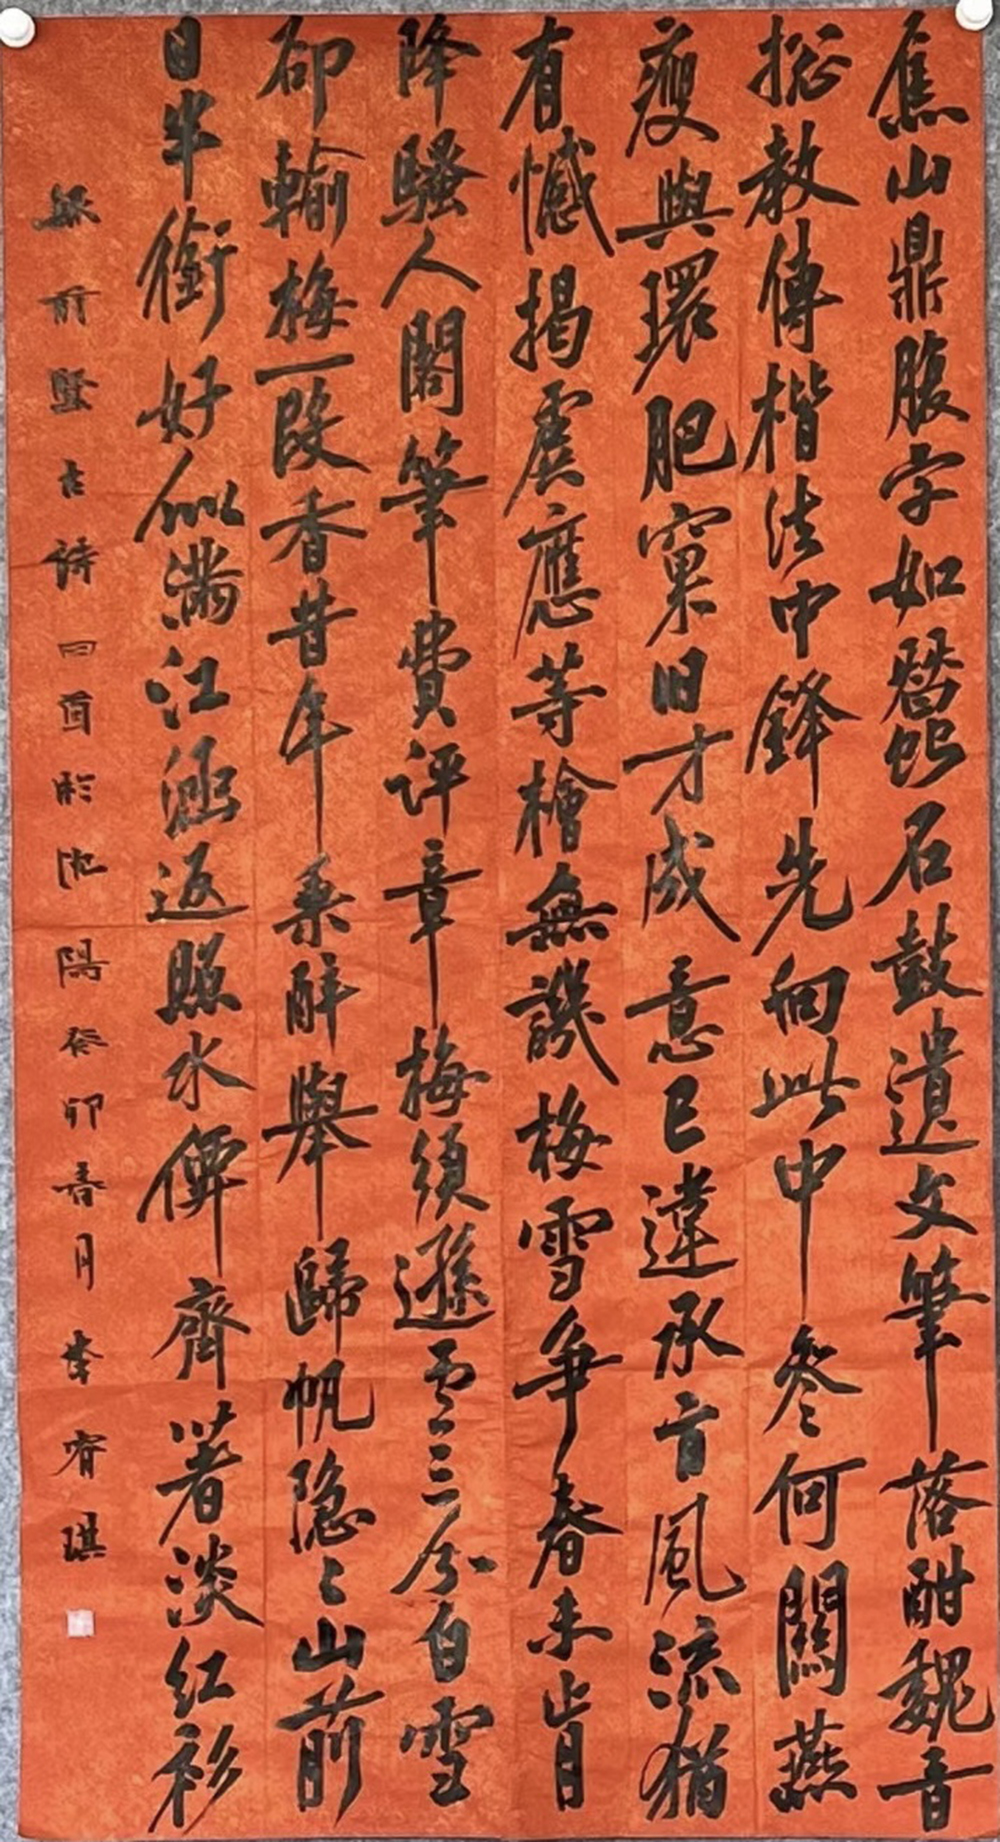 焦山鼎腹字如蠶石鼓遺文筆落酣魏晉
總教傳楷法中鋒先向此中參何關燕
瘦與環肥窠旧才成意已違承晉風流猶
有憾揭虞應等檜無譏梅雪争春未肯
降騷人閣筆費評章梅須遜雪三分白雪
卻輸梅一段香昔年乘醉舉歸帆隐〻山前
日半銜好似滿江涵返照水僊齊著淡红衫
錄前賢古詩四首於沈陽癸卯春月李睿琪